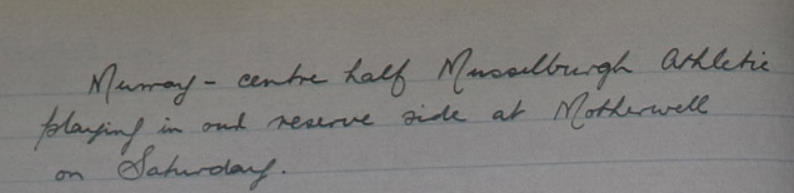 Murray - centre half Musselburgh Athletic
playing in our reserve side at Motherwell
on Saturday.